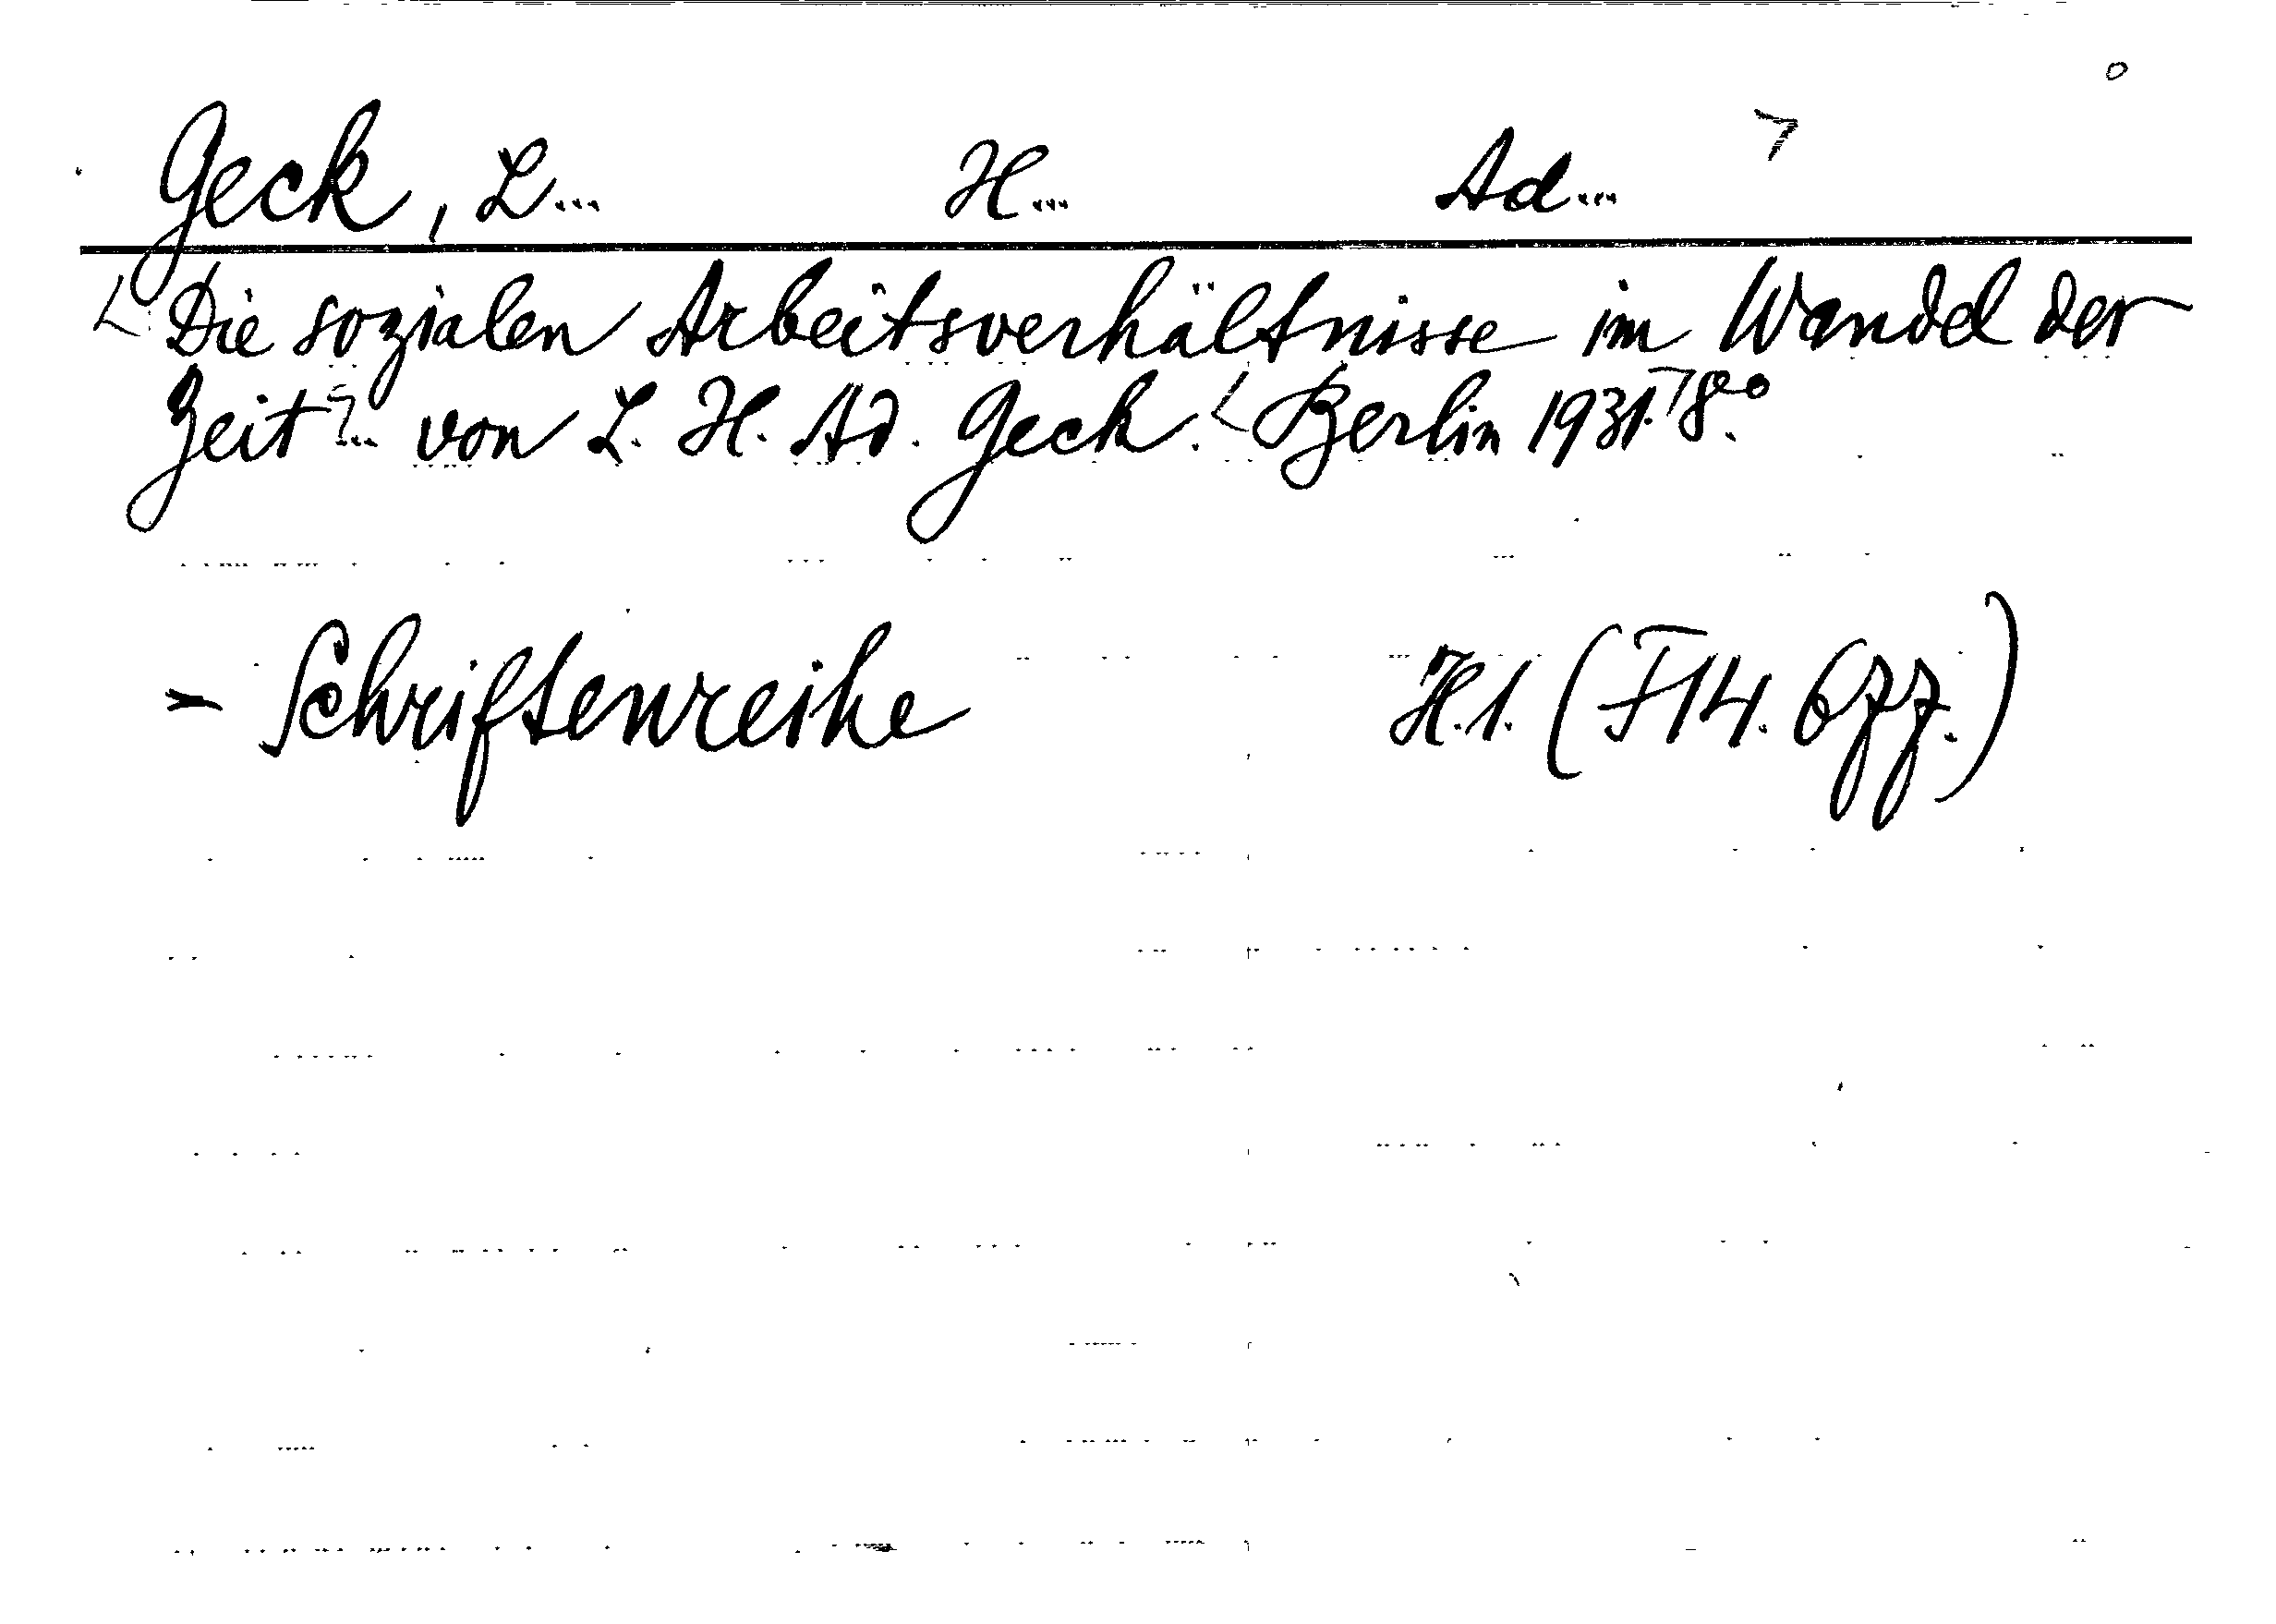 Geck, L... H... Ad...
Die sozialen Arbeitsverhältnisse im Wandel der
Zeit ... von L. H. Ad. Geck. Berlin 1931. 8°.
= Schriftenreihe H. 1. (F 14. 6 ff.)